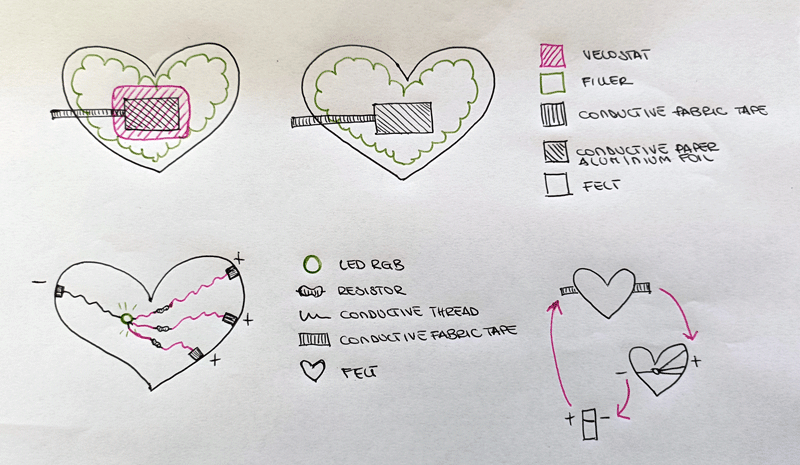 VELOSTAT
FILLER
CONDUCTIVE FABRIC TAPE
CONDUCTIVE PAPER
ALUMINIUM FOIL
FELT
− +
LED RGB
RESISTOR
+
CONDUCTIVE THREAD
CONDUCTIVE FABRIC TAPE
+
FELT
− +
+ −